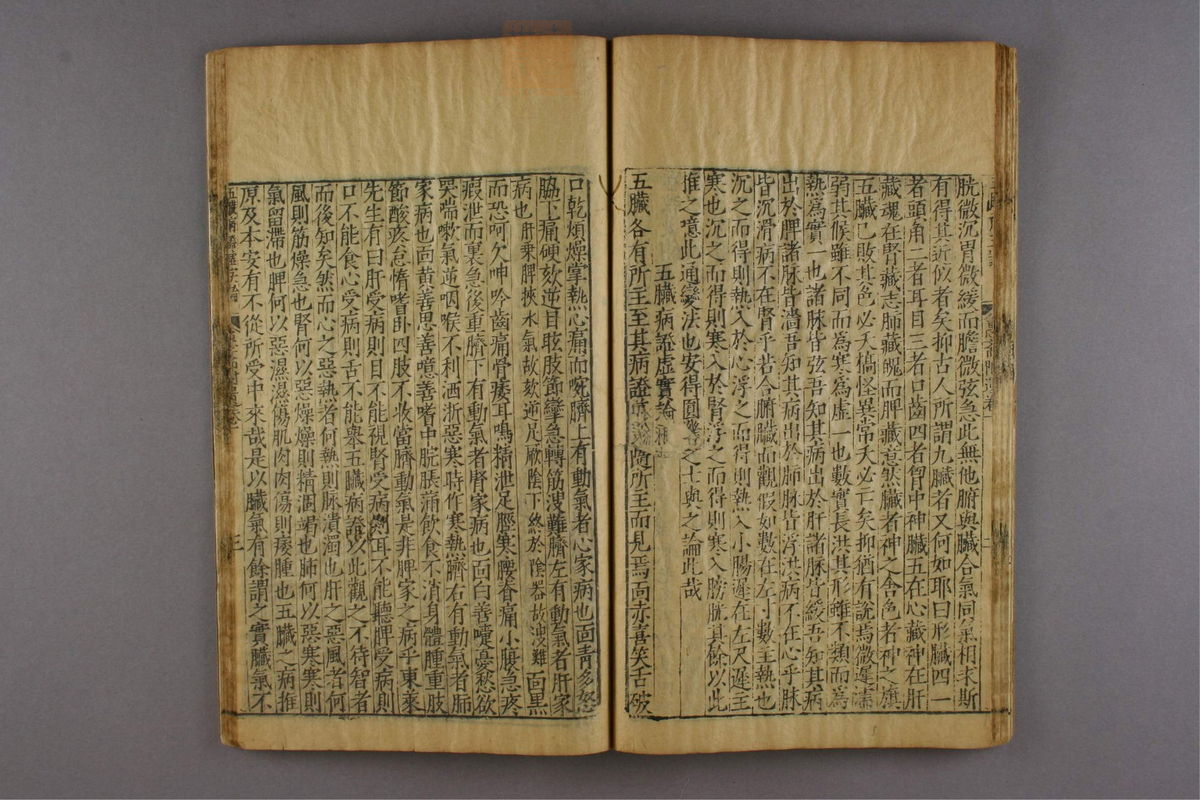 胱微沉胃微緩而膽微弦急此無他腑與臟合氣同氣相求斯
有得其近似者矣抑古人所謂九臟者又何如耶曰形臟四一
者頭角二者耳目三者口齒四者胷中神臟五在心藏神在肝
藏魂在腎藏志肺藏魄而脾藏意然臟者神之舍色者神之旗
五臟已敗其色必夭槁怪異常夭必亡矣抑猶有說焉微遲濡
弱其候雖不同而為寒為虛一也數實長洪其形雖不類而為
熱為實一也諸脉皆弦吾知其病出於肝諸脉皆緩吾知其病
出於脾諸脉皆濇吾知其病出於肺脉皆浮洪病不在心乎脉
皆沉滑病不在腎乎若合腑臟而觀假如數在左寸數主熱也
沉之而得則熱入於心浮之而得則熱入小腸遲在左尺遲主
寒也沉之而得則寒入於腎浮之而得則寒入膀胱其餘以此
推之噫此通變法也安得圓機之士與之論此哉
五臟病證虛實論
五臟各有所主至其病證隨所主而見焉面赤喜笑舌破
口乾煩燥掌熱心痛而噦臍上有動氣者心家病也面青多怒
脇下痛硬欬逆目眩肢節攣急轉筋溲難臍左有動氣者肝家
病也肝乘脾挾水氣故欬逆足厥陰下終於陰器故溲難面黑
而恐呵欠呻吟齒痛骨痿耳鳴精泄足脛寒腰脊痛小腹急疼
瘕泄而裏急後重臍下有動氣者腎家病也面白善嚏憂愁欲
哭喘嗽氣逆咽喉不利洒淅惡寒時作寒熱臍右有動氣者肺
家病也面黃善思善噫善嗜中脘脹滿飲食不消身體腫重肢
節酸疼怠惰嗜臥四肢不收當臍動氣是非脾家之病乎東萊
先生有曰肝受病則目不能視腎受病則耳不能聽脾受病則
口不能食心受病則舌不能舉五臟病證以此觀之不待智者
而後知矣然而心之惡熱者何熱則脉潰濁也肝之惡風者何
風則筋燥急也腎何以惡燥燥則精涸竭也肺何以惡寒寒則
氣留滯也脾何以惡濕濕傷肌肉肉傷則痿腫也五臟之病推
原及本安有不從所受中來哉是以臟氣有餘謂之實臟氣不